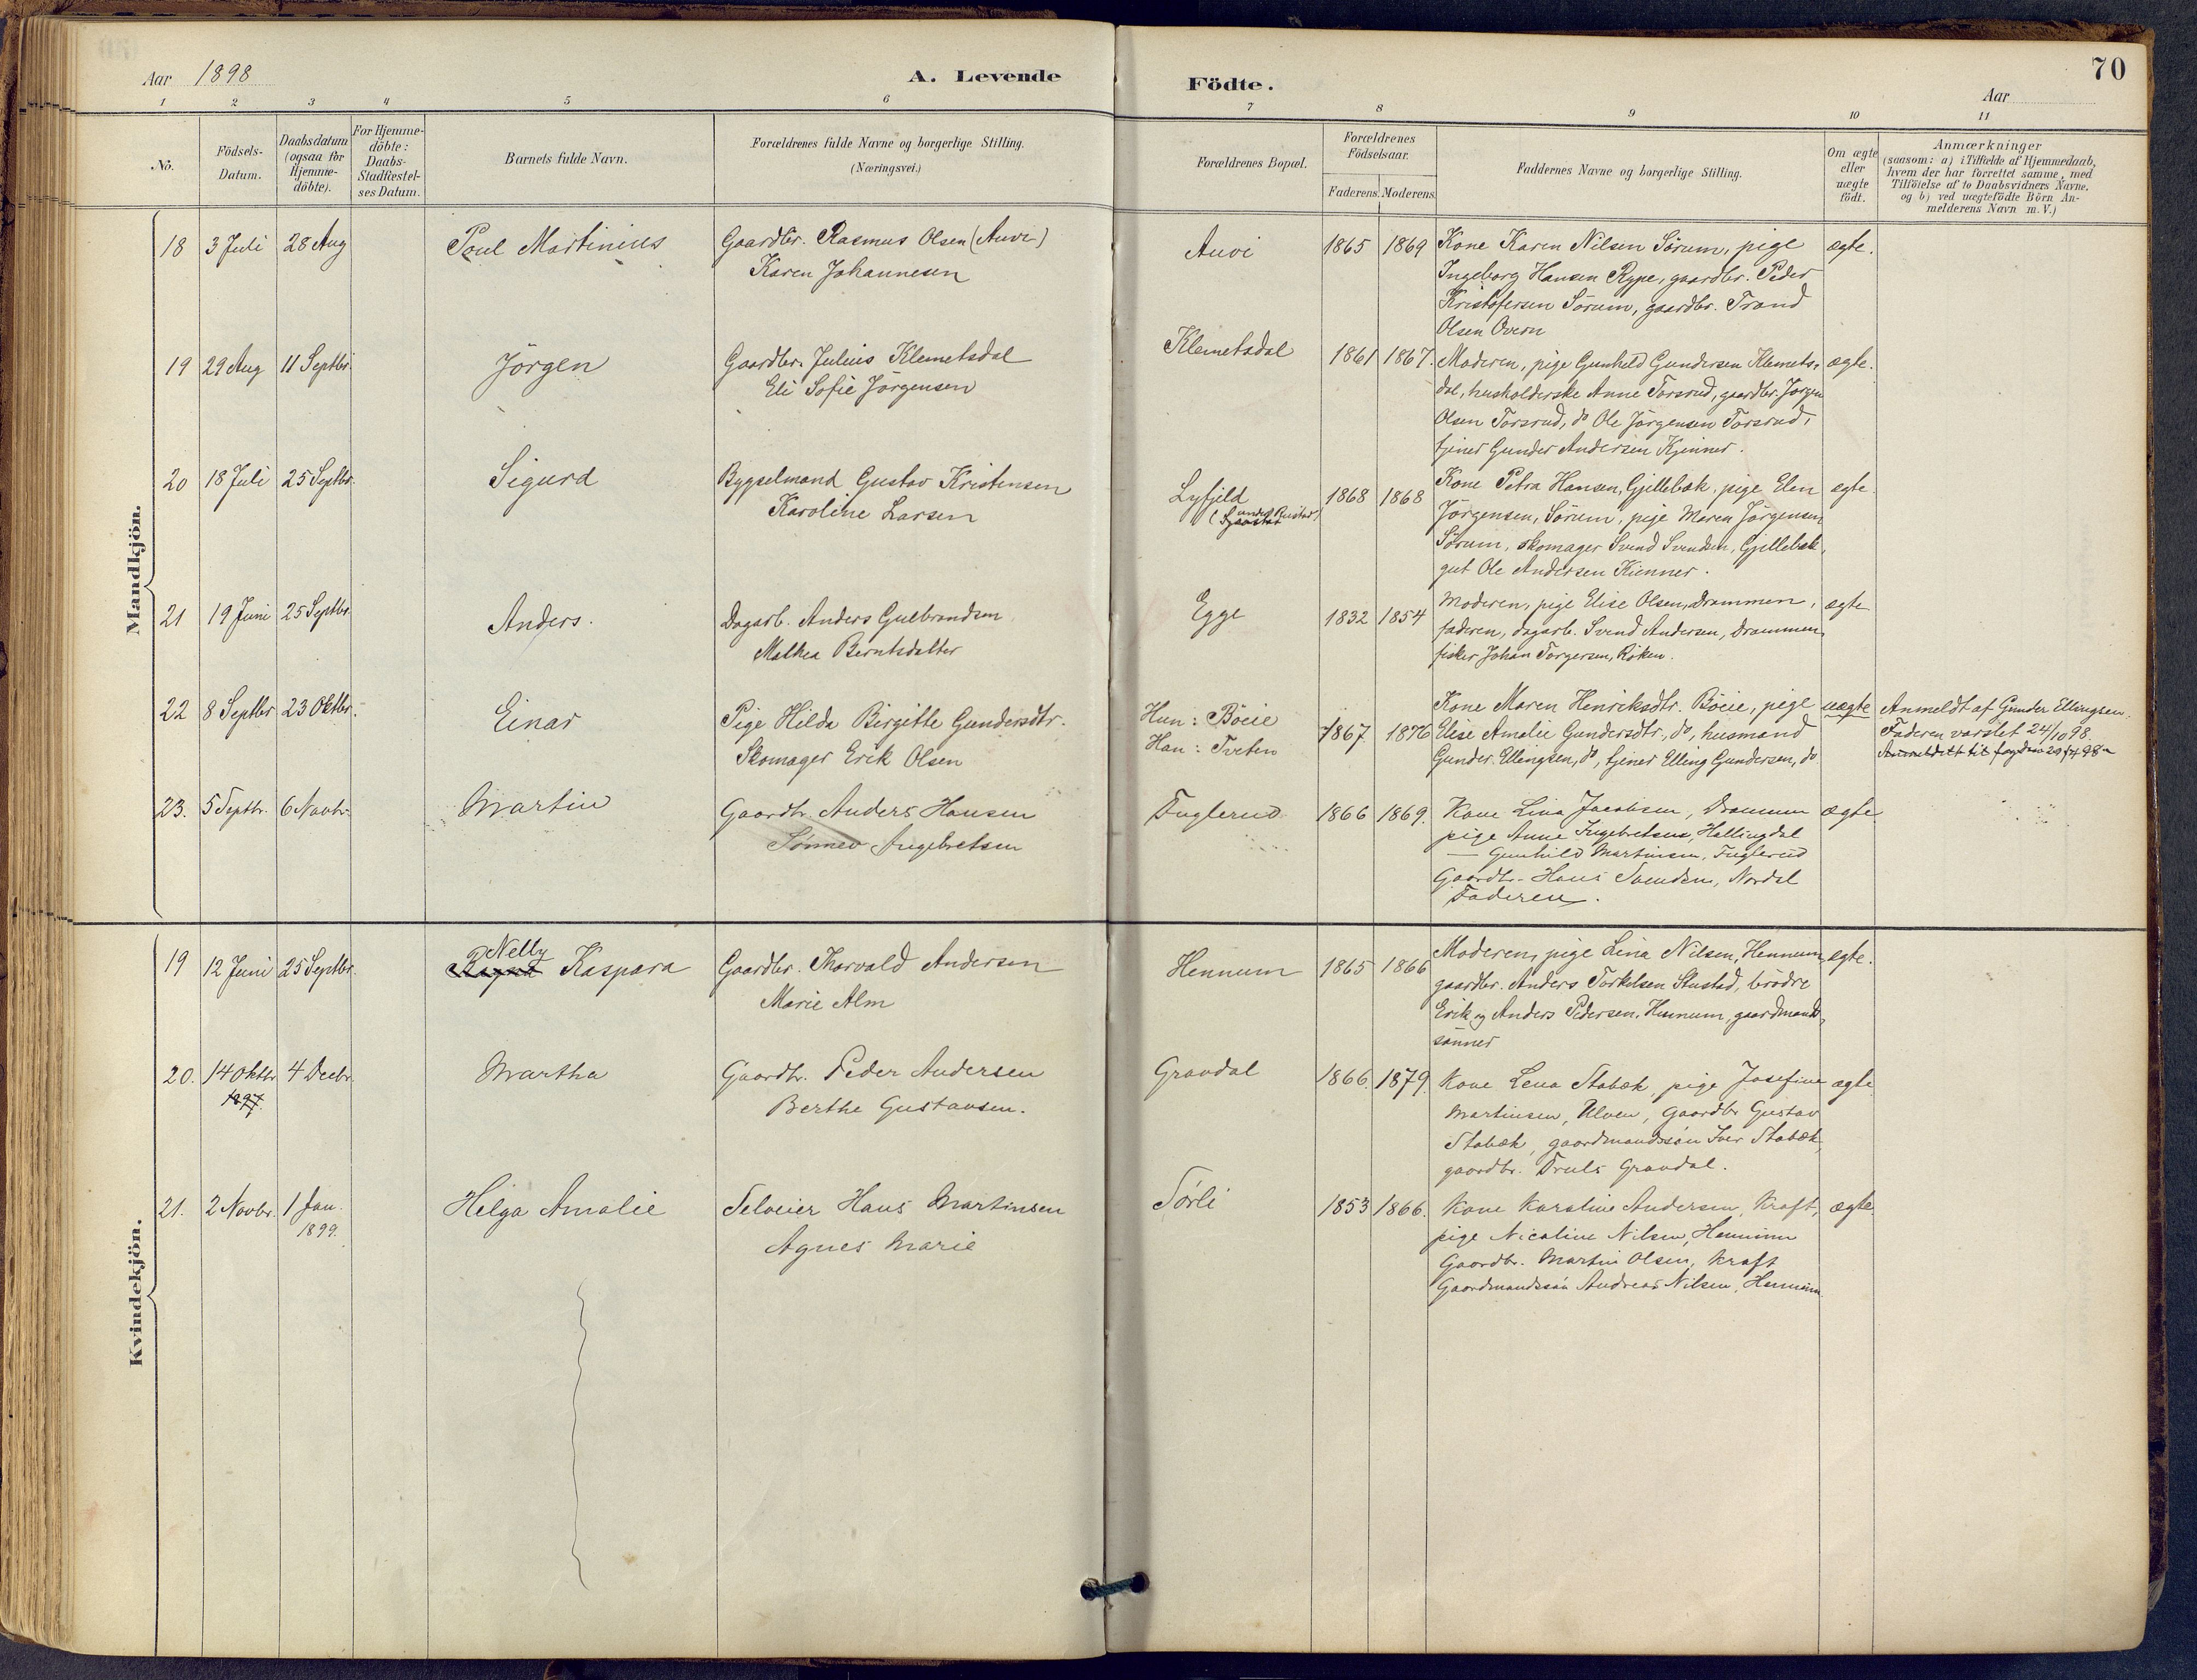 70
Aar 1898
A. Levende Födte.
Aar
1 2 3 4 5 6 7 8 9 10 11
No.
Födsels-Datum.
Daabsdatum (ogsaa for Hjemme-döbte).
For Hjemme-döbte: Daabs-Stadfæstel-ses Datum.
Barnets fulde Navn.
Forældrenes fulde Navne og borgerlige Stilling.
(Næringsvei.)
Forældrenes Bopæl.
Forældrenes Födselsaar.
Faderens. Moderens.
Faddernes Navne og borgerlige Stilling.
Om ægte eller uægte födt.
Anmærkninger
(saasom: a) i Tilfælde af Hjemmedaab,
hvem der har forrettet samme, med
Tilföielse af to Daabsvidners Navne.
og b) ved uægtefödte Börn An-
melderens Navn m. V.)
Mandkjön.
18 3 Juli 28 Aug Poul Martinius Gaardbr. Rasmus Olsen (Auvi) Auvi 1865 1869 Kone Karen Nilsen Sörum, pige ægte.
Karen Johannesen Ingeborg Hansen Rype, gaardbr. Peder
Kristofersen Sörum, gaardbr. Trond
Olsen Overn
19 29 Aug 11 Septbr. Jörgen Gaardbr. Julius Klemetsdal Klemetsdal 1861 1867. Moderen, pige Gunhild Gundersen Klemets- ægte.
Eli Sofie Jörgensen dal, husholderske Anne Torsrud, gaardbr. Jörgen
Olsen Torsrud, do Ole Jörgensen Torsrud,
tjener Gunder Andersen Kjinner.
20 18 Juli 25 Septbr. Sigurd Bygselmand Gustav Kristensen Lyfjeld 1868 1868 Kone Petra Hansen, Gjellebæk, pige Elen ægte.
Karoline Larsen (under Rustad) Jörgensen, Sörum, pige Maren Jörgensen
Sörum, skomager Svend Svendsen, Gjellebæk,
gut Ole Andersen Kinner.
21 19 Juni 25 Septbr. Anders. Dagarb. Anders Gulbrandsen Egge 1832 1854 Moderen, pige Elise Olsen, Drammen, ægte
Mathea Berntsdatter faderen, dagarb. Svend Andersen, Drammen,
fisker Johan Torgersen, Röken.
22 8 Septbr 23 Oktbr. Einar Pige Hilda Birgitte Gundersdtr. Hun: Böeie 1867. 1876 Kone Maren Henriksdtr. Böeie, pige uægte Anmeldt af Gunder Ellingsen.
Skomager Erik Olsen Han: Tveten Elise Amalie Gundersdtr., do, husmand Faderen varslet 24/10 98.
Gunder Ellingsen, do, tjener Elling Gundersen, do Anmeldelt til fogden
23. 5 Septbr. 6 Novbr. Martin Gaardbr. Anders Hansen Fuglerud 1866 1869. Kone Lina Jacobsen, Drammen ægte
Sönnev Ingebretsen pige Anne Ingebretsen, Hallingdal
— Gunhild Martinsen, Fuglerud
Gaardbr. Hans Svendsen, Nordal
Faderen.
Kvindekjön.
19 12 Juni 25 Septbr. Nelly
Ragna Kaspara Gaardbr. Thorvald Andersen Hennum 1865 1866 Moderen, pige Lina Nilsen, Hennum, ægte.
Marie Alm gaardbr. Anders Torkelsen Stustad, brödre
Erik og Anders Pedersen, Hennum, gaardmands-
sönner
20. 14 Oktbr 4 Decbr. Martha Gaardbr. Peder Andersen Gravdal 1866. 1879. Kone Lena Stabæk, pige Josefine ægte
1897. Berthe Gustavsen. Martinsen, Ulven, Gaardbr Gustav
Stabæk, gaardmandssön Iver Stabæk,
gaardbr. Truls Gravdal.
21. 2 Novbr. 1 Jan. Helga Amalie Selveier Hans Martinsen Törli 1853 1866. Kone Karoline Andersen, Kraft, ægte.
1899. Agnes Marie pige Nicoline Nilsen, Hennum
Gaardbr. Martin Olsen, Kraft
Gaardmandssön Andreas Nilsen, Hennum